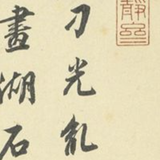 刀光乱
畫湖石